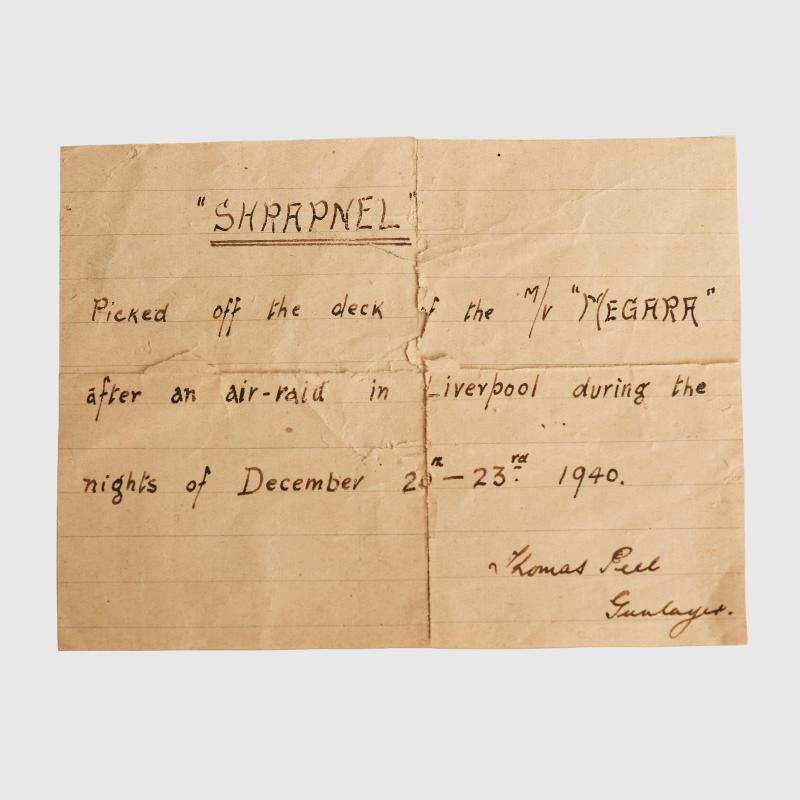 "SHRAPNEL"
Picked off the deck of the M/V "MEGARA"
after an air-raid in Liverpool during the
nights of December 20th – 23rd 1940.
Thomas Peel
Gunlayer.